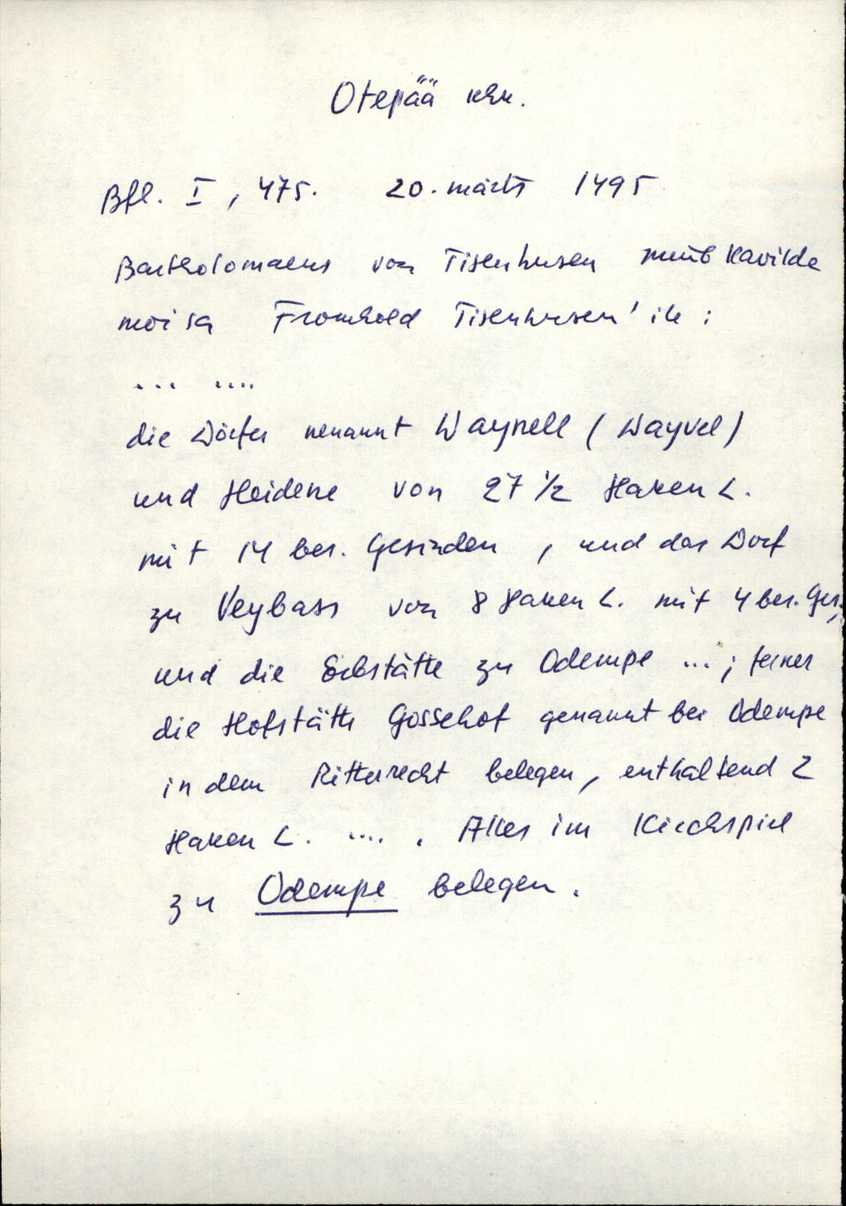 Otepää khk.
Bfl. I, 475. 20. märts 1495
Bartholomaeus von Tisenhusen müüb Kavilda
moisa Fromhold Tisenhusen'ile:
... ....
die Dörfer nenannt Waynell (Wayvel)
und Heidene von 27 1/2 Haken L.
mit 14 bes. Gesinden, und das Dorf
zu Veybass von 8 Haken L. mit 4 bes. Ges.,
und die Erbstätte zu Odempe ...; ferner
die Hofstätte Gossehof genannt bei Odempe
in dem Ritterrecht belegen, enthaltend 2
Haken L. .... . Alles im Kirchspiel
zu Odempe belegen.